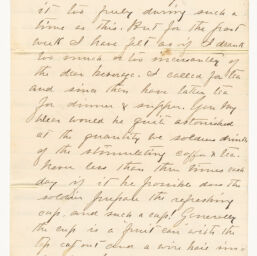 it too freely during such a
time as this. But for the past
week I have felt as if I drank
too much or too incessantly of
the dear beverage. I called for tea
and since then have taken tea
for dinner & supper. You my
would be quite astonished
at the quantity we soldiers drink
of the stimulating coffee & tea.
have less than three times each
day if it be possible does the
soldier prepare the refreshing
cup. and such a cup! Generally
the cup is a fruit can with the
top cut out and a wire